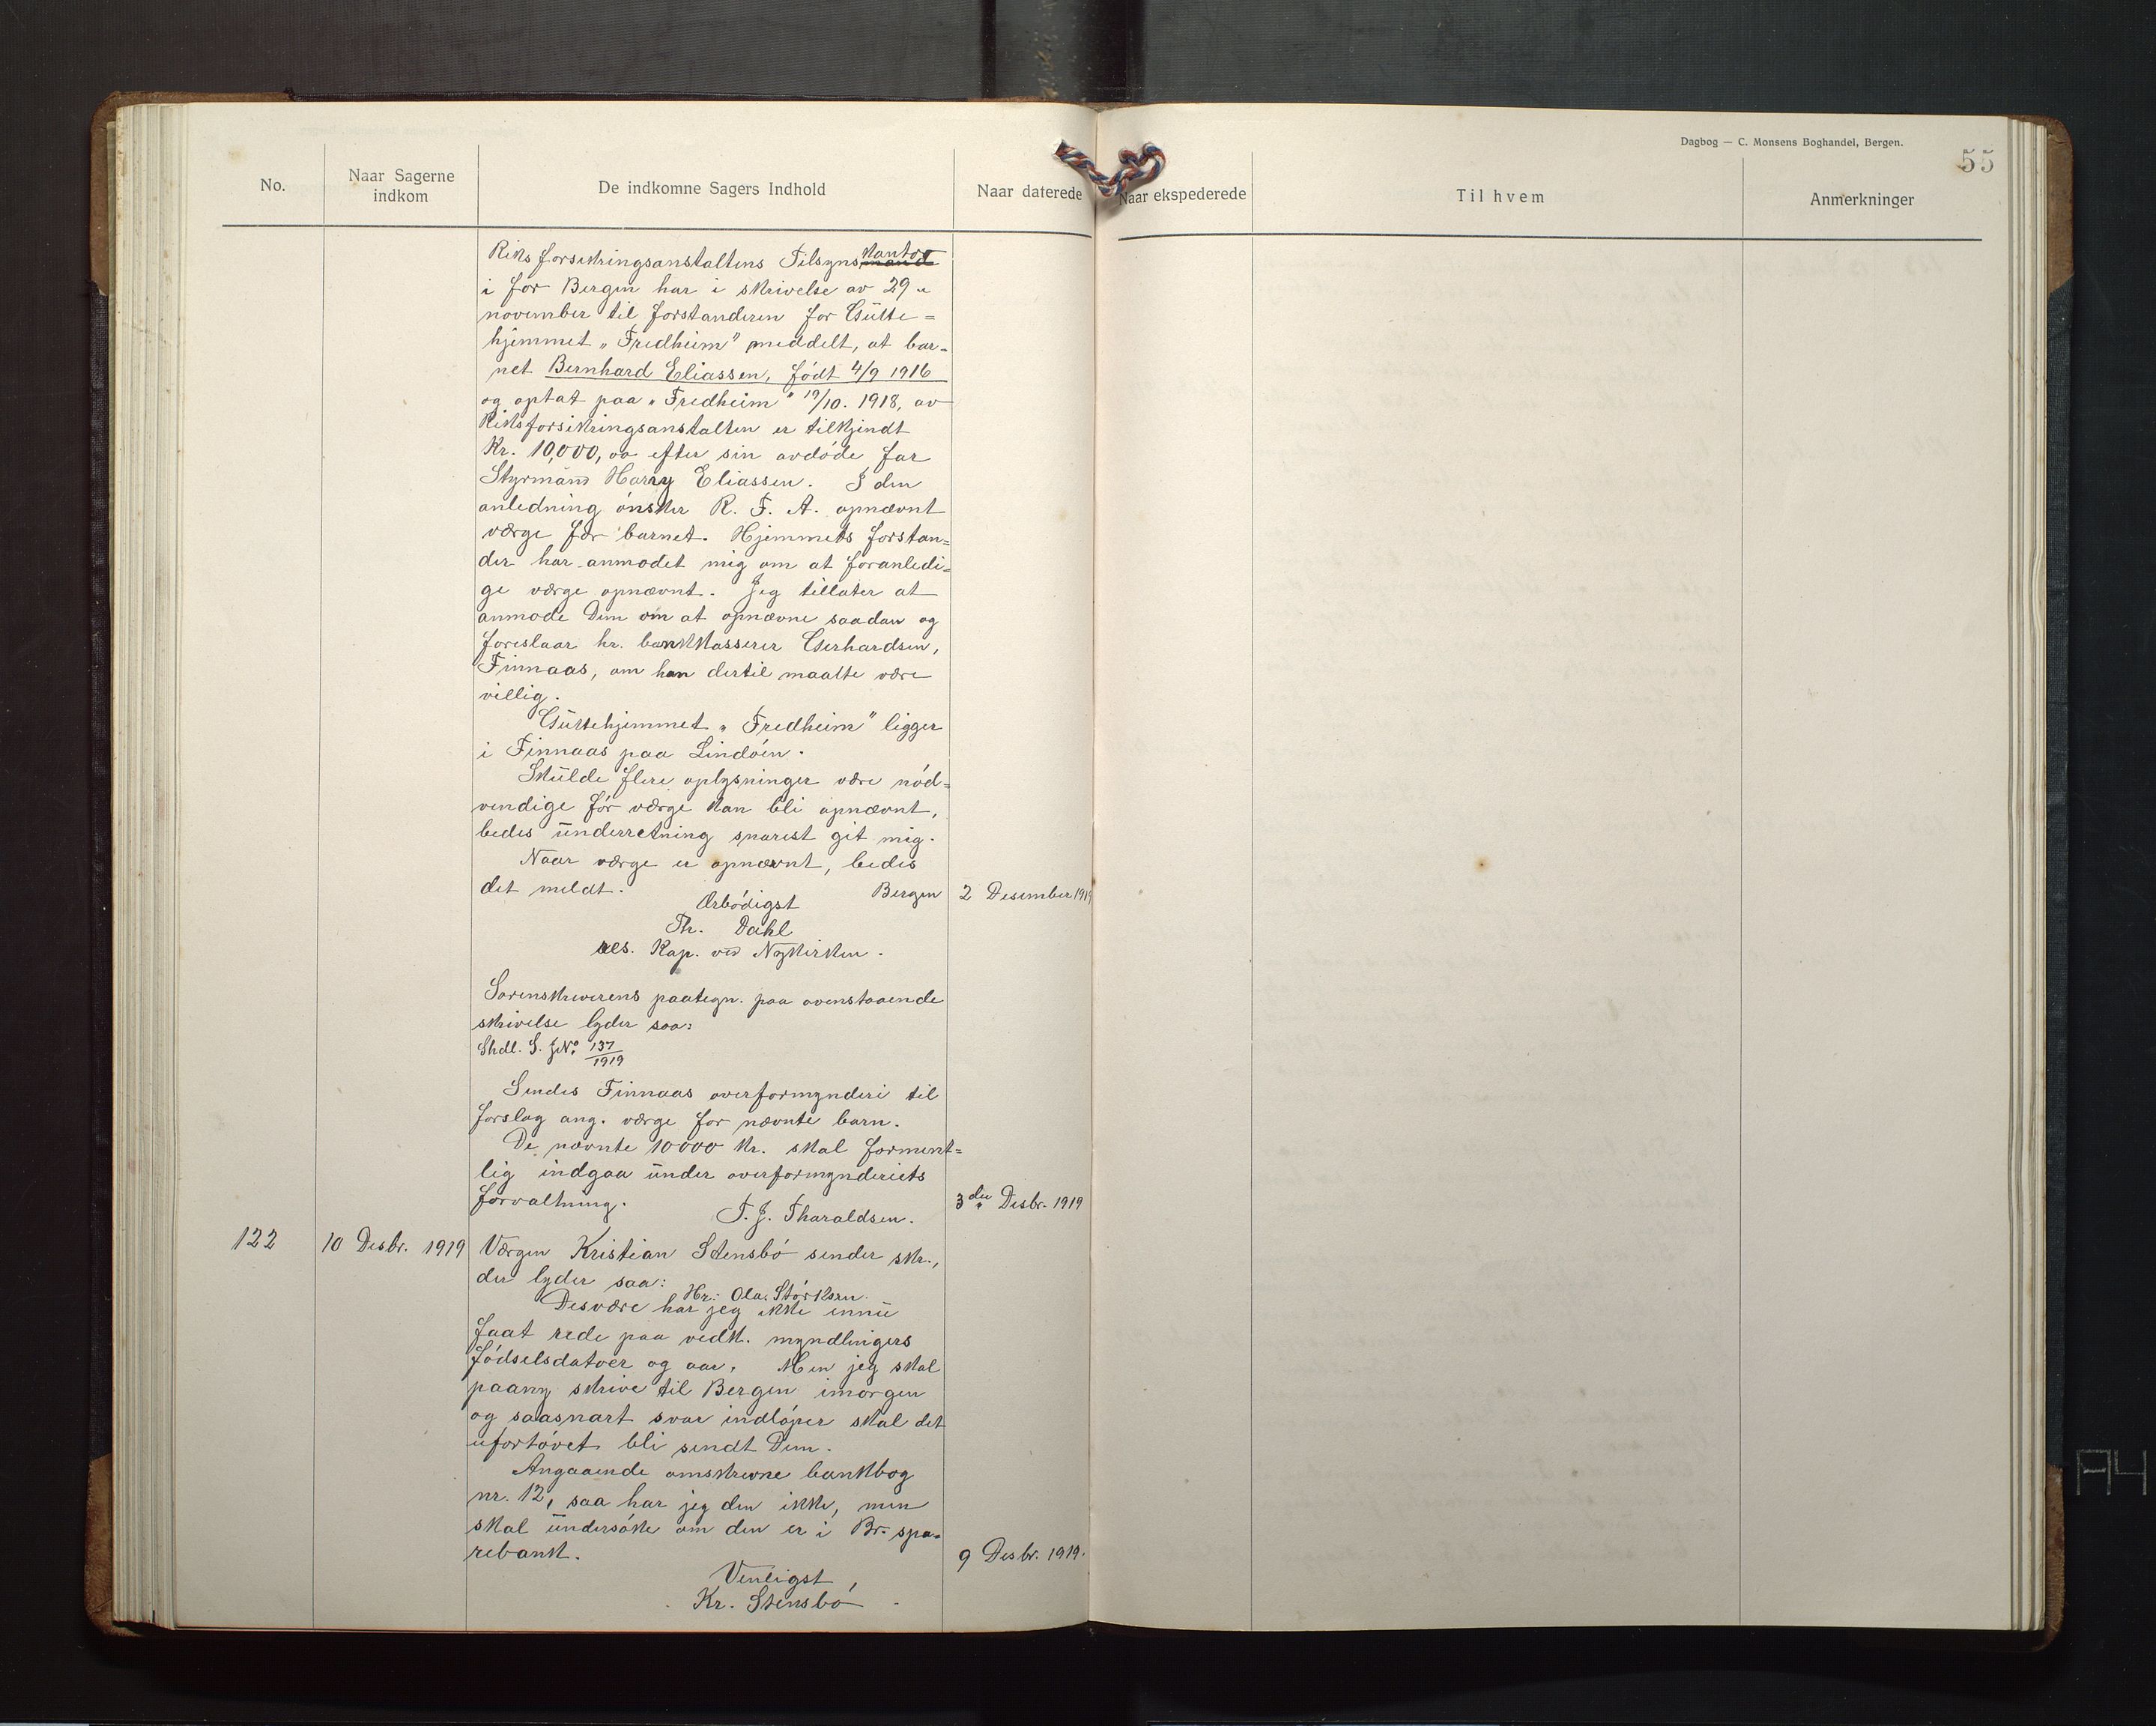 Dagbog — C. Monsens Boghandel, Bergen.
55
No.
Naar Sagerne indkom
De indkomne Sagers Indhold
Naar daterede
Naar ekspederede
Til hvem
Anmerkninger
Riksforsikringsanstaltens Tilsyns kontor
i for Bergen har i skrivelse av 29
november til forstanderen for Gutte=
hjemmet „Fredheim" meddelt, at bar=
net Bernhard Eliassen, født 4/9 1916
og optat paa „Fredheim" 19/10. 1918, av
Riksforsikringsanstalten er tilkjendt
Kr. 10,000,00 efter sin avdøde far
Styrmann Harry Eliassen. I den
anledning ønsker R. F. A. opnævnt
værge for barnet. Hjemmets forstan=
der har anmodet mig om at foranledi=
ge værge opnævnt. Jeg tillater at
anmode Dem om at opnævne saadan og
foreslaar hr. bankkasserer Gerhardsen,
Finnaas, om han dertil maatte være
villig.
Guttehjemmet „Fredheim" ligger
i Finnaas paa Lindøen.
Skulde flere oplysninger være nød=
vendige før værge kan bli opnævnt,
bedes underretning snarest git mig.
Naar værge er opnævnt, bedes
det meldt. Bergen 2 Desember 1919
Ærbødigst
Th. Dahl
res. Kap. ved Nykirken.
Sorenskriverens paategn. paa ovenstaaende
skrivelse lyder saa:
Shdl. S. JNo 137/1919
Sendes Finnaas overformynderi til
forslag ang. værge for nævnte barn.
De nævnte 10000 kr. skal forment=
lig indgaa under overformynderiets
forvaltning. 3die Desbr. 1919
T. J. Tharaldsen.
122 10 Desbr. 1919 Værgen Kristian Stensbø sender skr.,
der lyder saa:
Hr. Ola. Størksen.
Desværre har jeg ikke ennu
faat rede paa vedk. myndlingers
fødselsdatoer og aar. Men jeg skal
paany skrive til Bergen imorgen
og saasnart svar indløper skal det
ufortøvet bli sendt Dem.
Angaaende omskrevne bankbog
nr. 12, saa har jeg den ikke, men
skal undersøke om den er i Br. spa=
rebank. 9 Desbr. 1919.
Venligst
Kr. Stensbø
A4